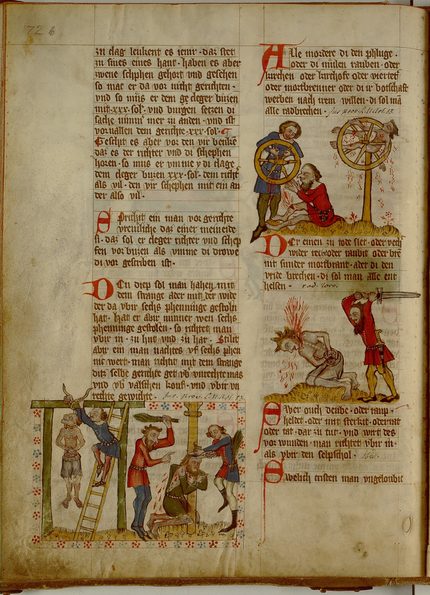 72 b
zu clag leukent es iener · daz stet
zu sines eines hant · haben es aber
zwene schphen gehort vnd gesehen
so mac er da vor nicht gerichten ·
vnd so mus er dem cleger buzen
mit · xxx · sol · vnd burgen setzen di
sache
vor allem dem gerichte · xxx · sol ·
Geschit es aber vor den vir benke
daz es der richter vnd di schephen
horen · so mus er vmme di clage
dem cleger buzen xxx · sol · dem richt
als vil · den vir schephen mit ein an
der also vil ·
Spricht ein man vor gerichte
vreueliche daz einer meineide
si · daz sol er cleger richter vnd schep
fen vor buzen als vmme di
di vor geschriben ist ·
Den diep sol man hahen mit
dem strange ader mit der wide
der da vbir sechs phenninge gestoln
hat · Hat er abir minner wen sechs
phenninge gestolen · so richtet man
vbir in · zu hut vnd zu har · Stilet
abir ein man nachtes vf sechs phen
nic wert · man richtet mit dem strange
Daz selbe gerichte get vb vnrechte mas
vnd vb valschen kouf · vnd vbir vn
rechte gewichte ·
Alle mordere di den phluge ·
oder di mulen rauben · oder
kirchen oder kirchhofe oder
oder mortbrenner oder di ir botschaft
werben nach irem willen · di sol man
alle radbrechen ·
Der einen zu tode slet · oder
wider · oder raubit oder bre
nit sunder mortbrant · ader di den
vride brechen · di sol man alle ent
helsen ·
Swer ouch deube · oder raup ·
heldet · oder mit sterkit · odermit
oder tat · dar zu tut · vnd wirt des
vor wunden · man richtet vbir in ·
als vbir den selpschol ·
Swelich cristen man vngeloubic